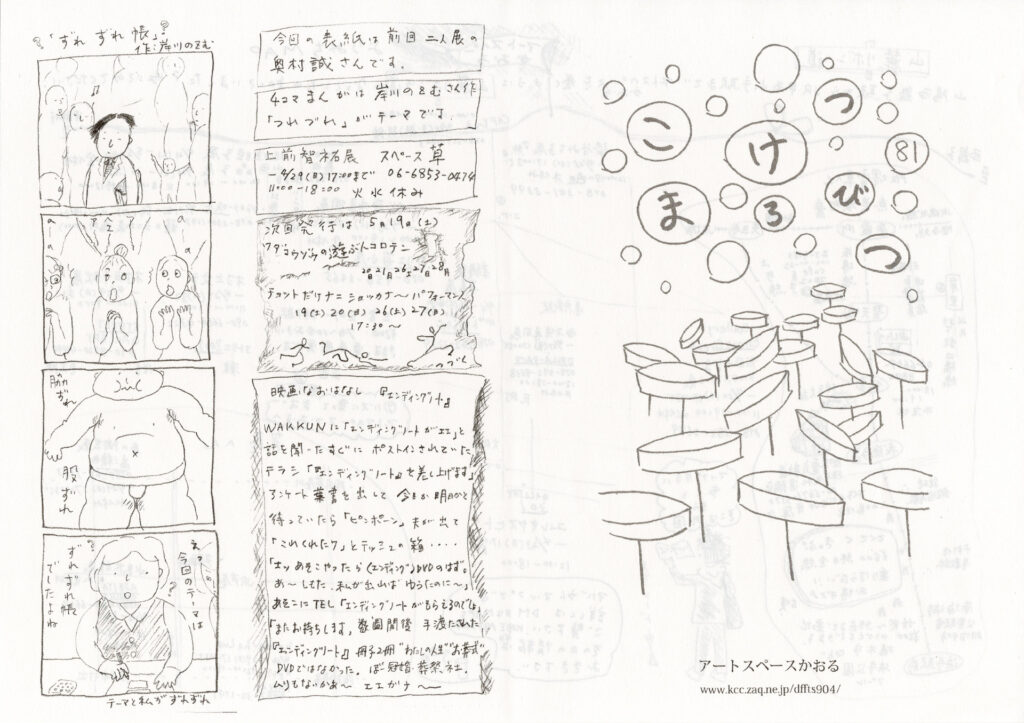 「ずれ ずれ 帳」
作:岸川のぞむ
ア
a
a
脇ずれ
股ずれ
えっ
今回のテーマは
ずれずれ帳
でしたよね
テーマと私がずれずれ
今回の表紙は前回二人展の
奥村誠さんです.
4コマまんがは岸川のぞむさん作
「つれづれ」がテーマです.
上前智祐展 スペース草
–4/29(日)17:00まで 06-6853-0474
11:00–18:00 火水休み
次回発行は 5月19日(土)
ワダコウゾウの遊ぶんコロテン
チョットだけナニ ショッカナ〜パフォーマンス
19(土)20(日)26(土)27(日)
17:30〜
つづく
映画なおはなし 『エンディングノート』
WAKKUNに「エンディングノートがエエ」と
話を聞いたすぐに ポストインされていた
チラシ「『エンディングノート』を差し上げます」
アンケート葉書を出して 今日か明日かと
待っていたら「ピンポーン」夫が出て
「これくれた?」とテッシュの箱・・・・
「エッ あそこやったら(エンディング)DVDのはず。
あ〜してた. 私が出れば ゆうたのに〜」
あそこにTEL「エンディングノートがもらえるのでは」
「またお持ちします」数回間後 手渡された
『エンディングノート』 冊子2冊 "わたしの人生""お葬式"
DVDではなかった。 ぼ冠婚葬祭ネエ
ムリもないかぁ〜 エエガナ〜
こ
つ
け
81
ま
る
び
つ
アートスペースかおる
www.kcc.zaq.ne.jp/dffts904/